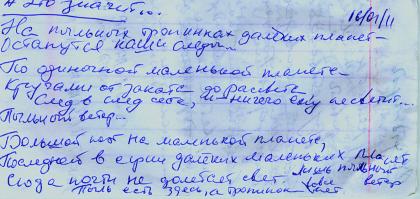 А это значит...
16/01/11
На пыльных тропинках далёких планет –
Останутся наши следы...
По одиночной маленькой планете –
Кругами от заката до рассвета
След в след себе, и ничего ему не светит...
Пыльный ветер...
Большой кот на маленькой планете,
Последней в серии далёких маленьких планет
Сюда почти не долетает свет лишь пыльный ветер
Пыль есть здесь, а тропинок нет